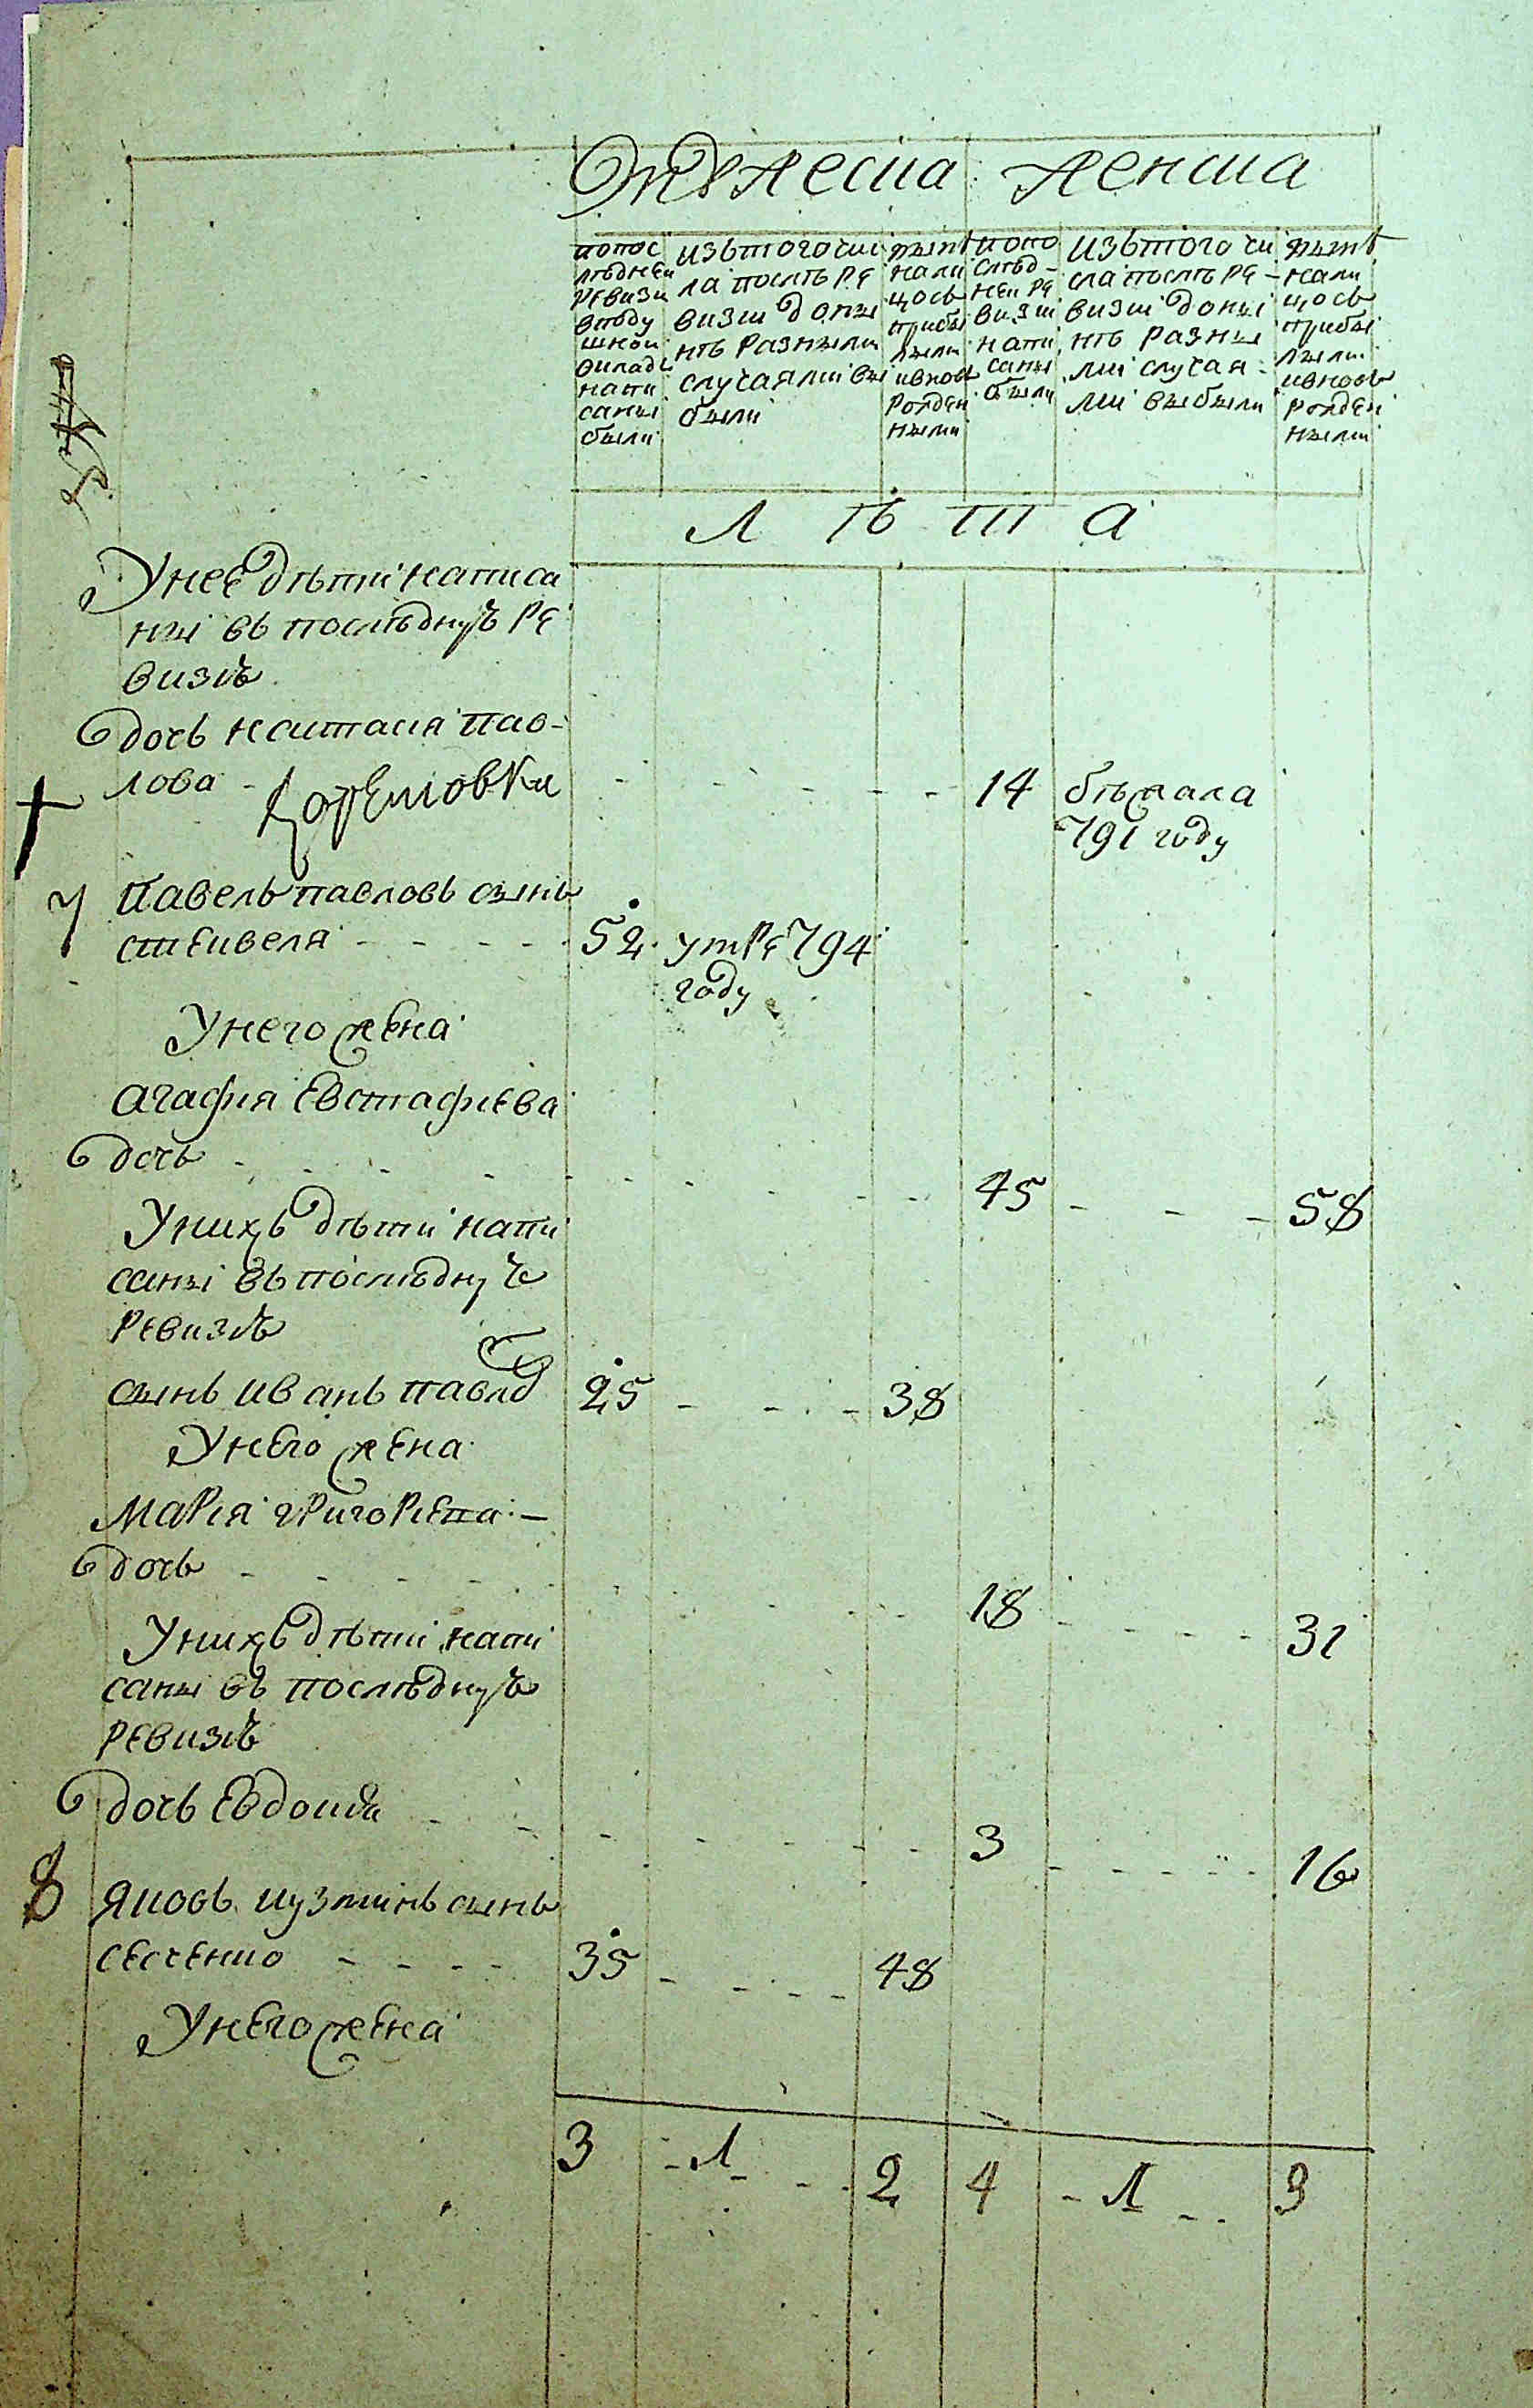 Мужеска женска
по пос
лѣдней
ревизи
в поду
шной
окладъ
напи
саны
были
изъ того чис
ла послѣ ре
визии до ны
нѣ разными
случаями вы
были
нынѣ
нали
цось
прибы
лыми
и внов
рожден
ными
по по
слѣд-
ней ре
визии
напи
саны
были
изъ того чи
сла послѣ ре-
визии до ны
нѣ разны
ми случая-
ми выбыли
нынѣ
нали
цось
прибы
лыми
и вновь
рожден
ными
Л ѣ т а
У нее дѣти написа
ны въ последную ре
визію
дочь настасия пав-
лова - - - - - 14 бѣжала
791 году
7 Павелъ павловъ сынъ
- - - - 52 умре 794
году
У него жена
агафия Евстафиева
дочь - - - - 45 - - - 58
У нихъ дѣти напи
саны въ последную
ревизію
сынъ иванъ павло 25 - - - 38
У него жена
Мария григориева -
дочь - - - - 18 - - - - 31
У нихъ дѣти напи
саны въ последную
ревизію
дочь Евдокия - - - - 3 - - - - 16
8 яковъ кузминъ сынъ
- - - - 35 - - - - 48
У него жена
3 - 1 - - 2 4 - 1 - - 3